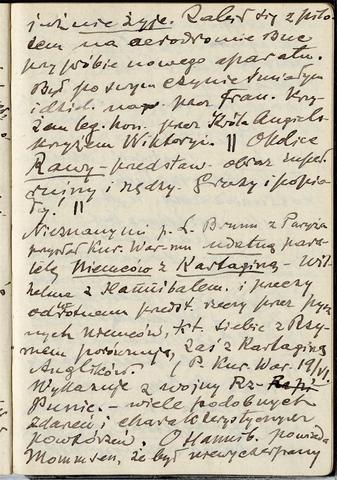 już nie żyje. Zabił się z pilo-
tem na aerodromie Buc
przy próbie nowego aparatu.
Był po swym czynie śmiałym
i dziel. nagr. przez Fran. krzy-
żem leg. hon. przez Króla Angiels.
krzyżem Wiktoryi. || Okolice
Rawy – przedstaw. obraz zupeł.
ruiny i nędzy. Gruzy i popio-
ły! ||
Nieznany mi p. L. Brunn z Paryża
przysłał Kur. War-mu udatną para-
lelę Niemców z Kartaginą – Wil-
helma z Hannibalem. i przeczy
odwrotnem przedst. rzeczy przez
nych Niemców, kt. siebie z Rzy-
mem porównują, zaś z Kartaginą
Anglików. (P. Kur. War. 19/VI.
Wykazuje z wojny Rz.
Punic. – wiele podobnych
zdarzeń i charakterystycznych
powtórzeń. O Hannib. powiada
Mommsen, że był niewyczerpany